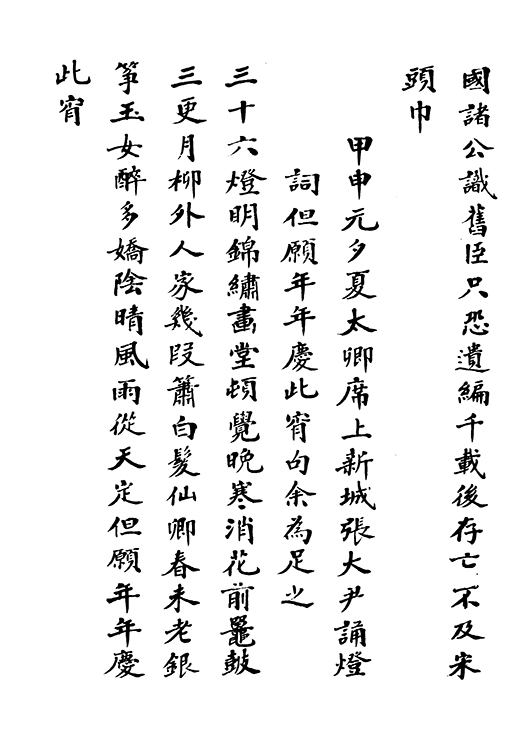 國諸公識舊臣只恐遺編千載後存亡不及宋
頭巾
甲申元夕夏太卿席上新城張大尹誦燈
詞但願年年慶此宵句余為足之
三十六燈明錦繡畫堂頓覺晚寒消花前鼉鼓
三更月柳外人家幾段簫白髮仙卿春未老銀
箏玉女醉多嬌陰晴風雨從天定但願年年慶
此宵